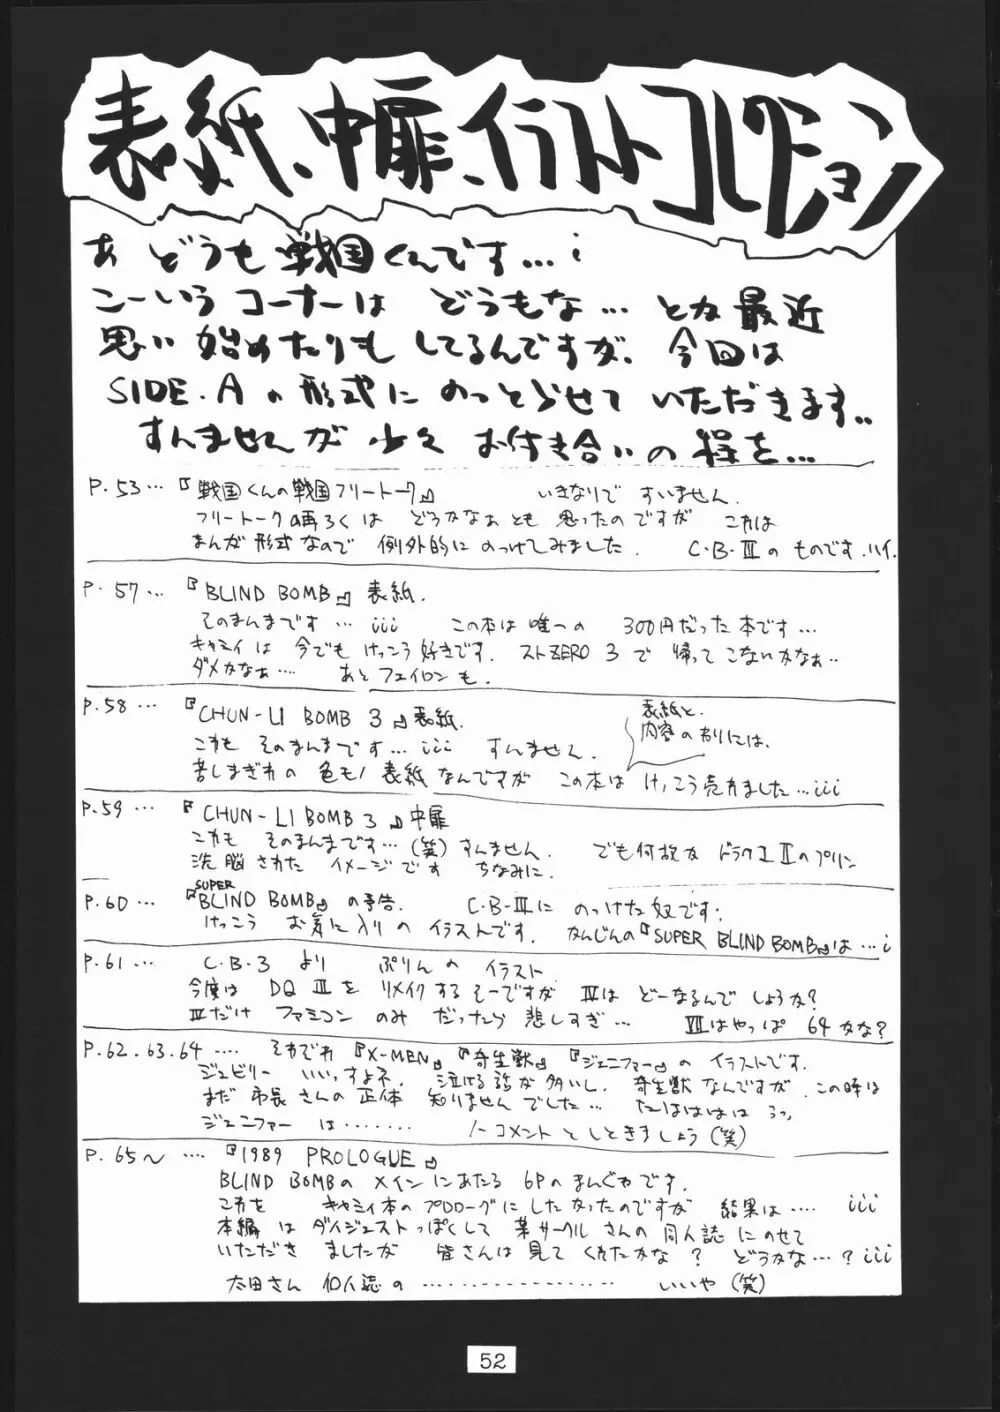 表紙、中扉、イラストコレクション
あ どうも戦国くんです…i
こーいうコーナーは どうもな… とか最近
思い始めたりもしてるんですが、今回は
SIDE.Aの形式に のっとらせて いただきます..
すんませんが 少々 お付き合いの程を…
P.53…『戦国くんの戦国フリートーク』 いきなりで すいません.
フリートークの再ろくは どうかなぁとも 思ったのですが これは
まんが形式なので 例外的にのっけてみました. C・B・Ⅲのものです.ハイ.
P.57…『BLIND BOMB』表紙.
そのまんまです…iii この本は唯一の 300円だった本です…
キャミィは 今でもけっこう好きです. ストZERO3で 帰ってこないかなぁ..
ダメかなぁ…. あとフェイロンも.
P.58…『CHUN-LI BOMB 3』表紙.
これも そのまんまです…iii すんません.
苦しまぎれの 色モノ表紙なんですが この本は けっこう売れました…iii
表紙と.
内容の割りには.
P.59…『CHUN-LI BOMB 3』中扉
これも そのまんまです…(笑)すんません. でも何故かドラクエⅡのプリン
洗脳された イメージです ちなみに.
P.60…『SUPER BLIND BOMB』の予告. C・B-Ⅲに のっけた奴です.
けっこう お気に入りの イラストです. かんじんの『SUPER BLIND BOMB』は…i
P.61… C・B・3より ぷりんの イラスト
今度は DQⅢを リメイクするそーですが Ⅳは どーなるんでしょうか?
Ⅳだけ ファミコン のみ だったら 悲しすぎ… Ⅶはやっぱ 64かな?
P.62.63.64…. それぞれ『X-MEN』『寄生獣』『ジェニファー』の イラストです.
ジュビリー いいっすよネ. 泣ける話が多いし. 寄生獣なんですが この時は
まだ 市長さんの正体 知りませんでした… たははははうっ.
ジェニファーは……. ノーコメントとしときましょう(笑)
P.65〜….『1989 PROLOGUE』
BLIND BOMBの メインにあたる 6Pのまんがです.
これを キャミィ本のプロローグにしたかったのですが 結果は…. iii
本編は ダイジェストっぽくして 某サークルさんの同人誌にのせて
いただき ましたが 皆さんは見てくれたかな? どうかな…?iii
太田さん 個人誌の ………………… いいや(笑)
52